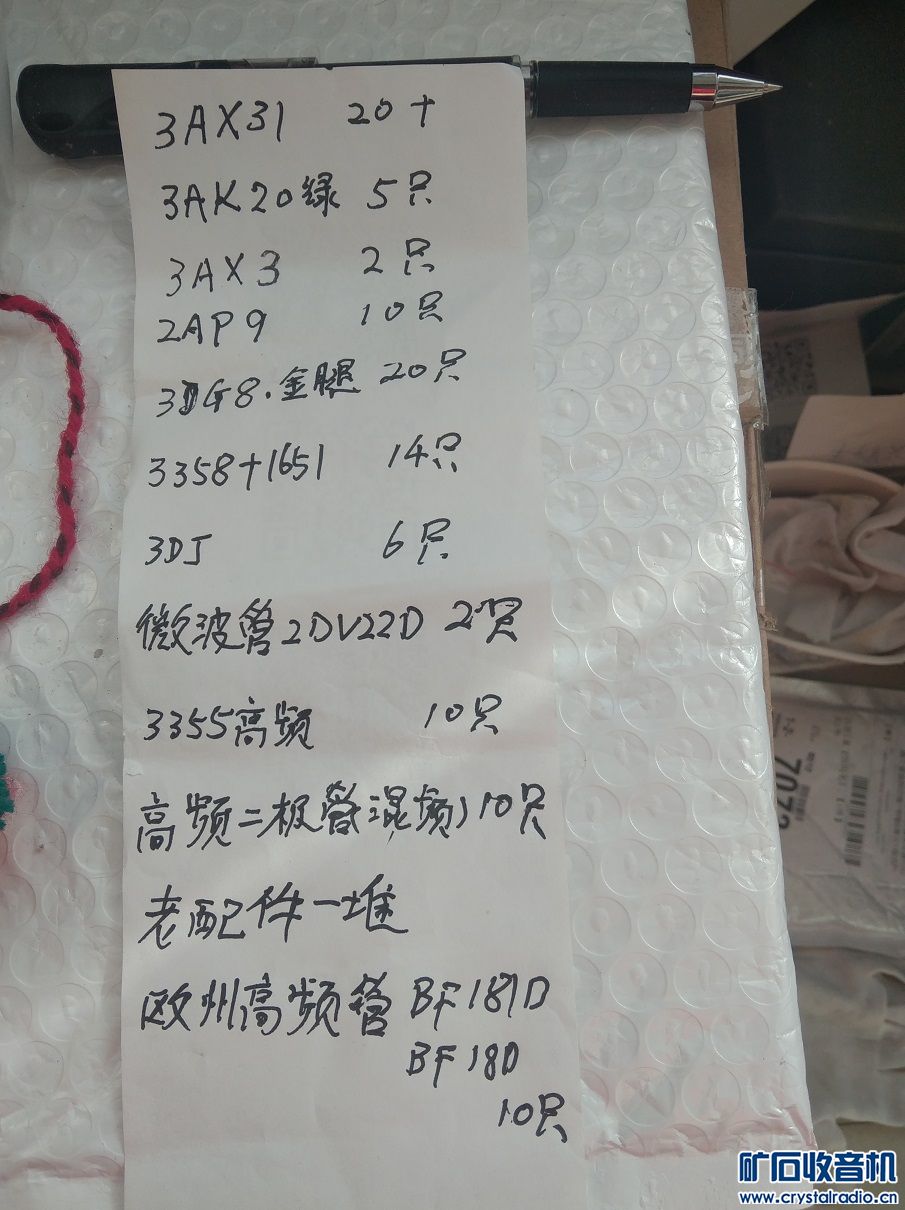 3AX31 20+
3AK20绿 5只
3AX3 2只
2AP9 10只
3DG8.金腿 20只
3358+1651 14只
3DJ 6只
微波管2DV22D 2只
3355高频
10只
高频二极管混频)10只
老配件一堆
欧州高频管 BF181D
BF18D
10只
7073
矿石收音机
www.crystalradio.cn